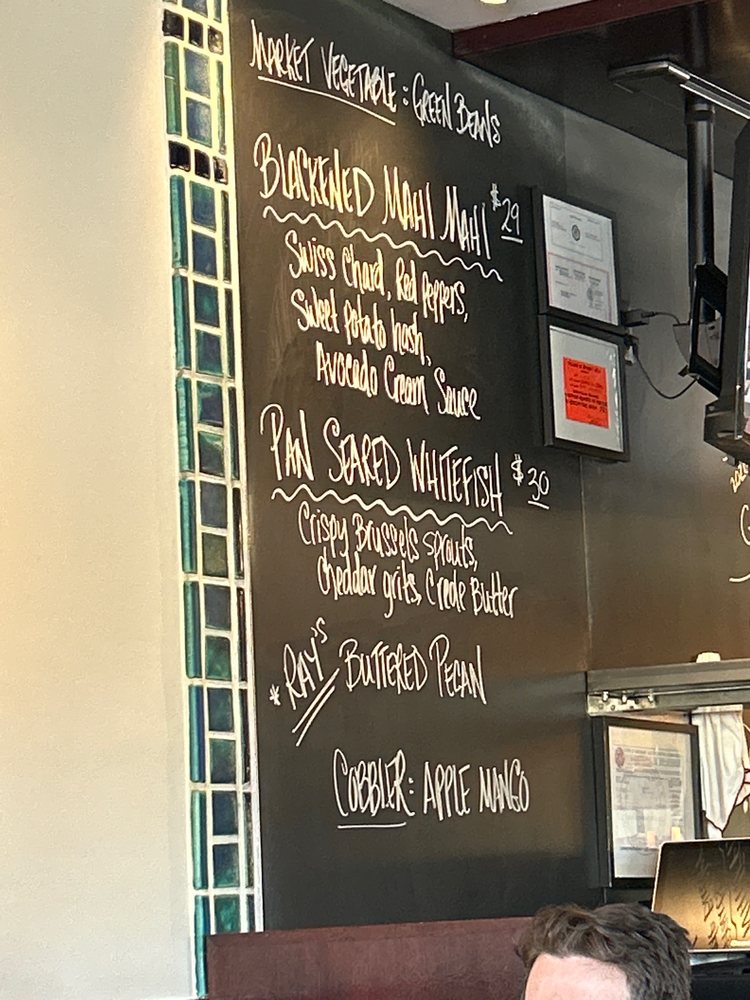 MARKET VEGETABLE: GREEN BEANS
BLACKENED MAHI MAHI $29
Swiss Chard, Red Peppers,
Sweet Potato hash,
Avocado Cream Sauce
PAN SEARED WHITEFISH $30
Crispy Brussels sprouts,
Cheddar grits, Creole Butter
* RAY'S BUTTERED PECAN
COBBLER: APPLE MANGO